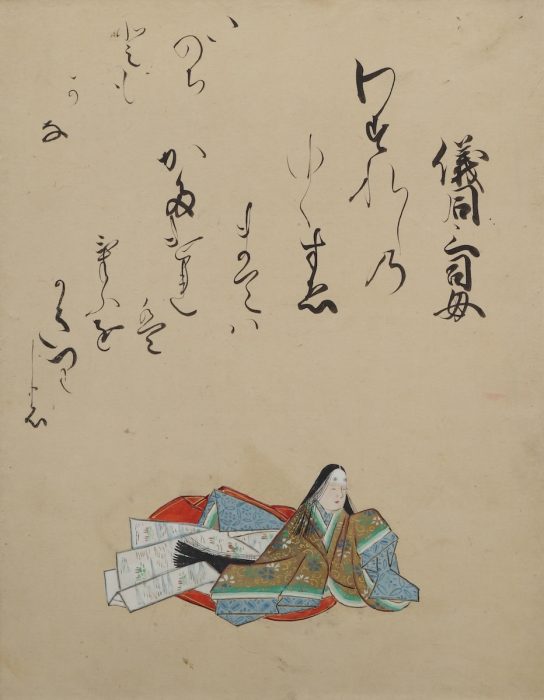 儀同三司母
わすれしの
ゆくすゑ
まてハ
かたけれ
は
けふを
いのち
とも
か
な